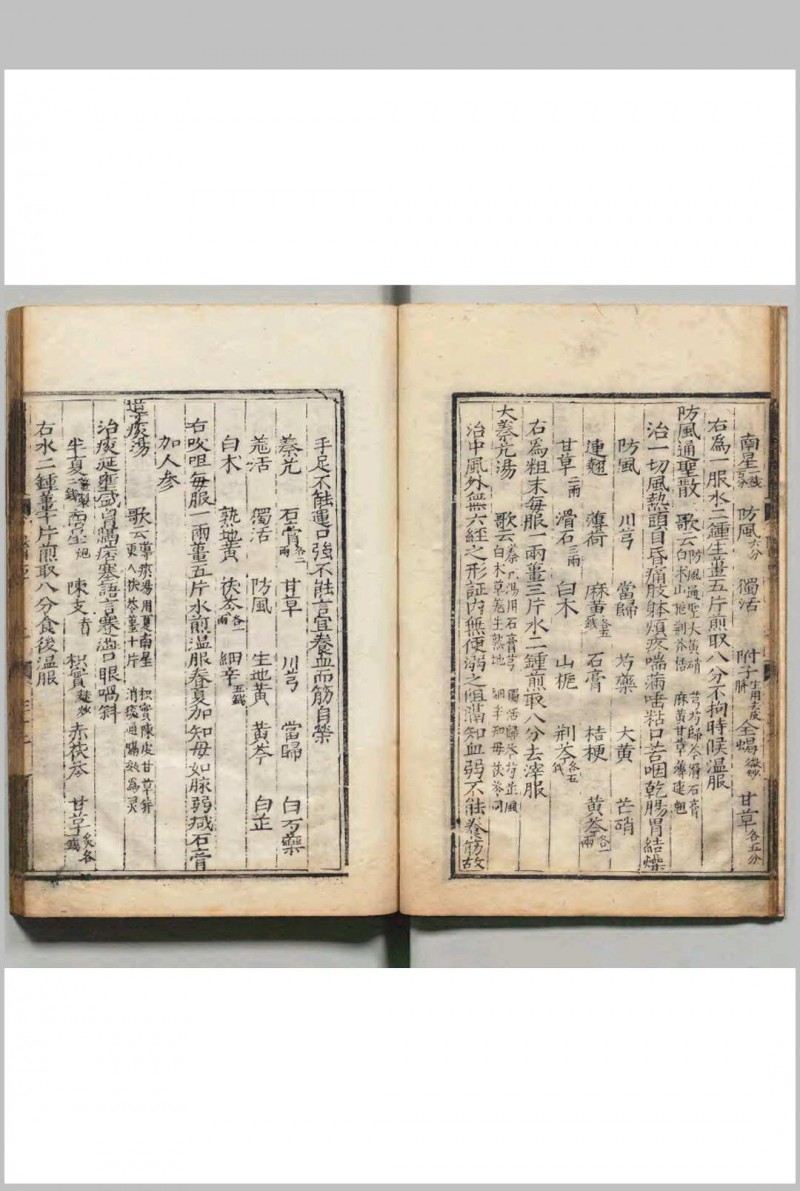 南星 防風六分 獨活 附子生用去皮臍 全蝎微炒 甘草各五分
右為一服水二鍾生薑五片煎取八分不拘時候溫服
防風通聖散 歌云防風通聖大黃硝 芎芍歸 石膏
白朮山梔荊芥桔 麻黃甘草薄連翹
治一切風熱頭目昏痛肢躰煩疼喘滿唾粘口苦咽乾腸胃結燥
防風 川芎 當歸 芍藥 大黃 芒硝
連翹 薄荷 麻黃各五錢 石膏 桔梗 黃芩各一兩
甘草二兩 滑石三兩 白木 山梔 荊芥各五錢
右為粗末每服一兩薑三片水二鍾煎取八分去滓服
大蓁艽湯 歌云
治中風外無六經之形証內無便溺之阻滿知血弱不能養筋故
手足不能運口強不能言宜養血而筋自榮
蓁艽 石膏各二兩 甘草 川芎 當歸 白芍藥
羗活 獨活 防風 生地黃 黃芩 白芷
白木 熟地黃 茯苓各一兩 細辛五錢
右㕮咀每服一兩薑五片水煎溫服春夏加知母如脈弱减石膏
加人參
導痰湯 歌云導痰湯用夏南星 枳實陳皮甘草并
更入茯苓薑十片 消痰
治痰涎壅盛胷膈痞塞語言蹇澁口眼喎斜
半夏 南星炮 陳皮去 枳實麸炒 赤茯苓 甘草炙各
右水二鍾薑十片煎取八分食後溫服